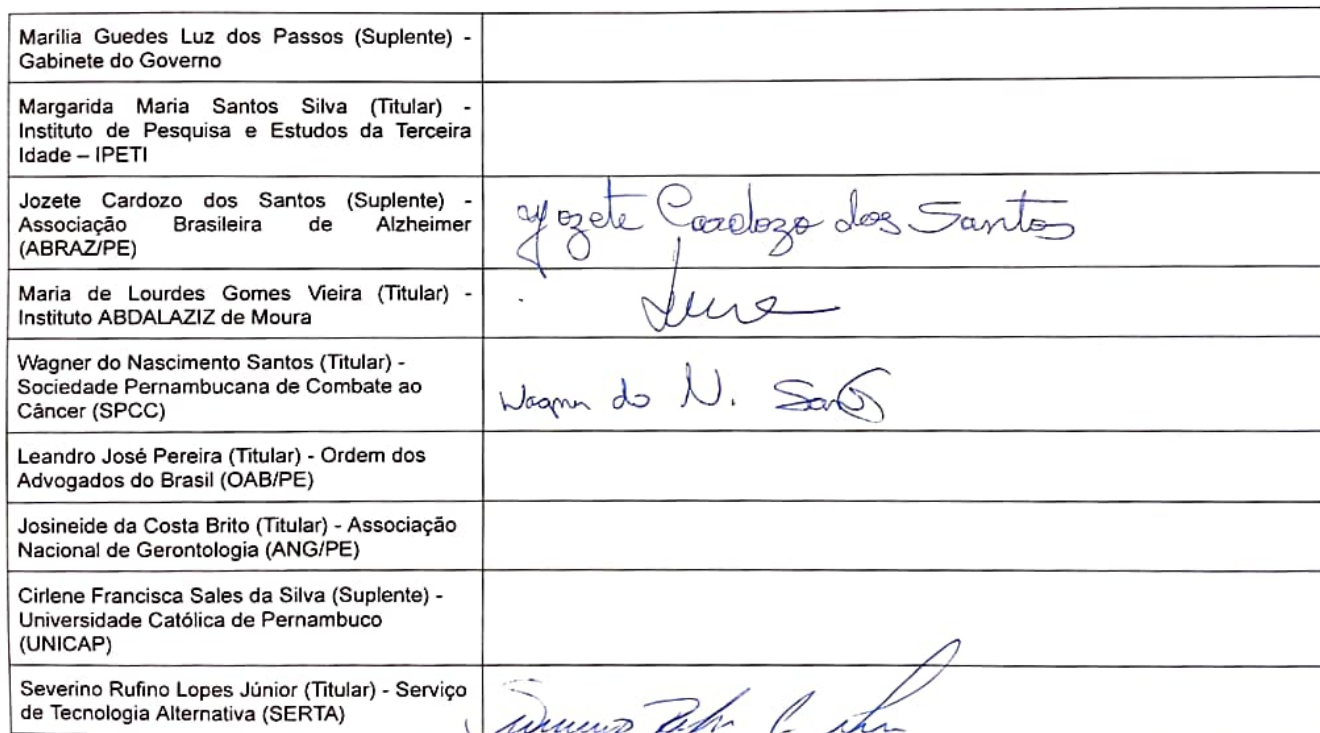 Marília Guedes Luz dos Passos (Suplente) -
Gabinete do Governo
Margarida Maria Santos Silva (Titular) -
Instituto de Pesquisa e Estudos da Terceira
Idade – IPETI
Jozete Cardozo dos Santos (Suplente) -
Associação Brasileira de Alzheimer
(ABRAZ/PE)
Jozete Cardozo dos Santos
Maria de Lourdes Gomes Vieira (Titular) -
Instituto ABDALAZIZ de Moura
Wagner do Nascimento Santos (Titular) -
Sociedade Pernambucana de Combate ao
Câncer (SPCC)
Wagner do N. Santos
Leandro José Pereira (Titular) - Ordem dos
Advogados do Brasil (OAB/PE)
Josineide da Costa Brito (Titular) - Associação
Nacional de Gerontologia (ANG/PE)
Cirlene Francisca Sales da Silva (Suplente) -
Universidade Católica de Pernambuco
(UNICAP)
Severino Rufino Lopes Júnior (Titular) - Serviço
de Tecnologia Alternativa (SERTA)